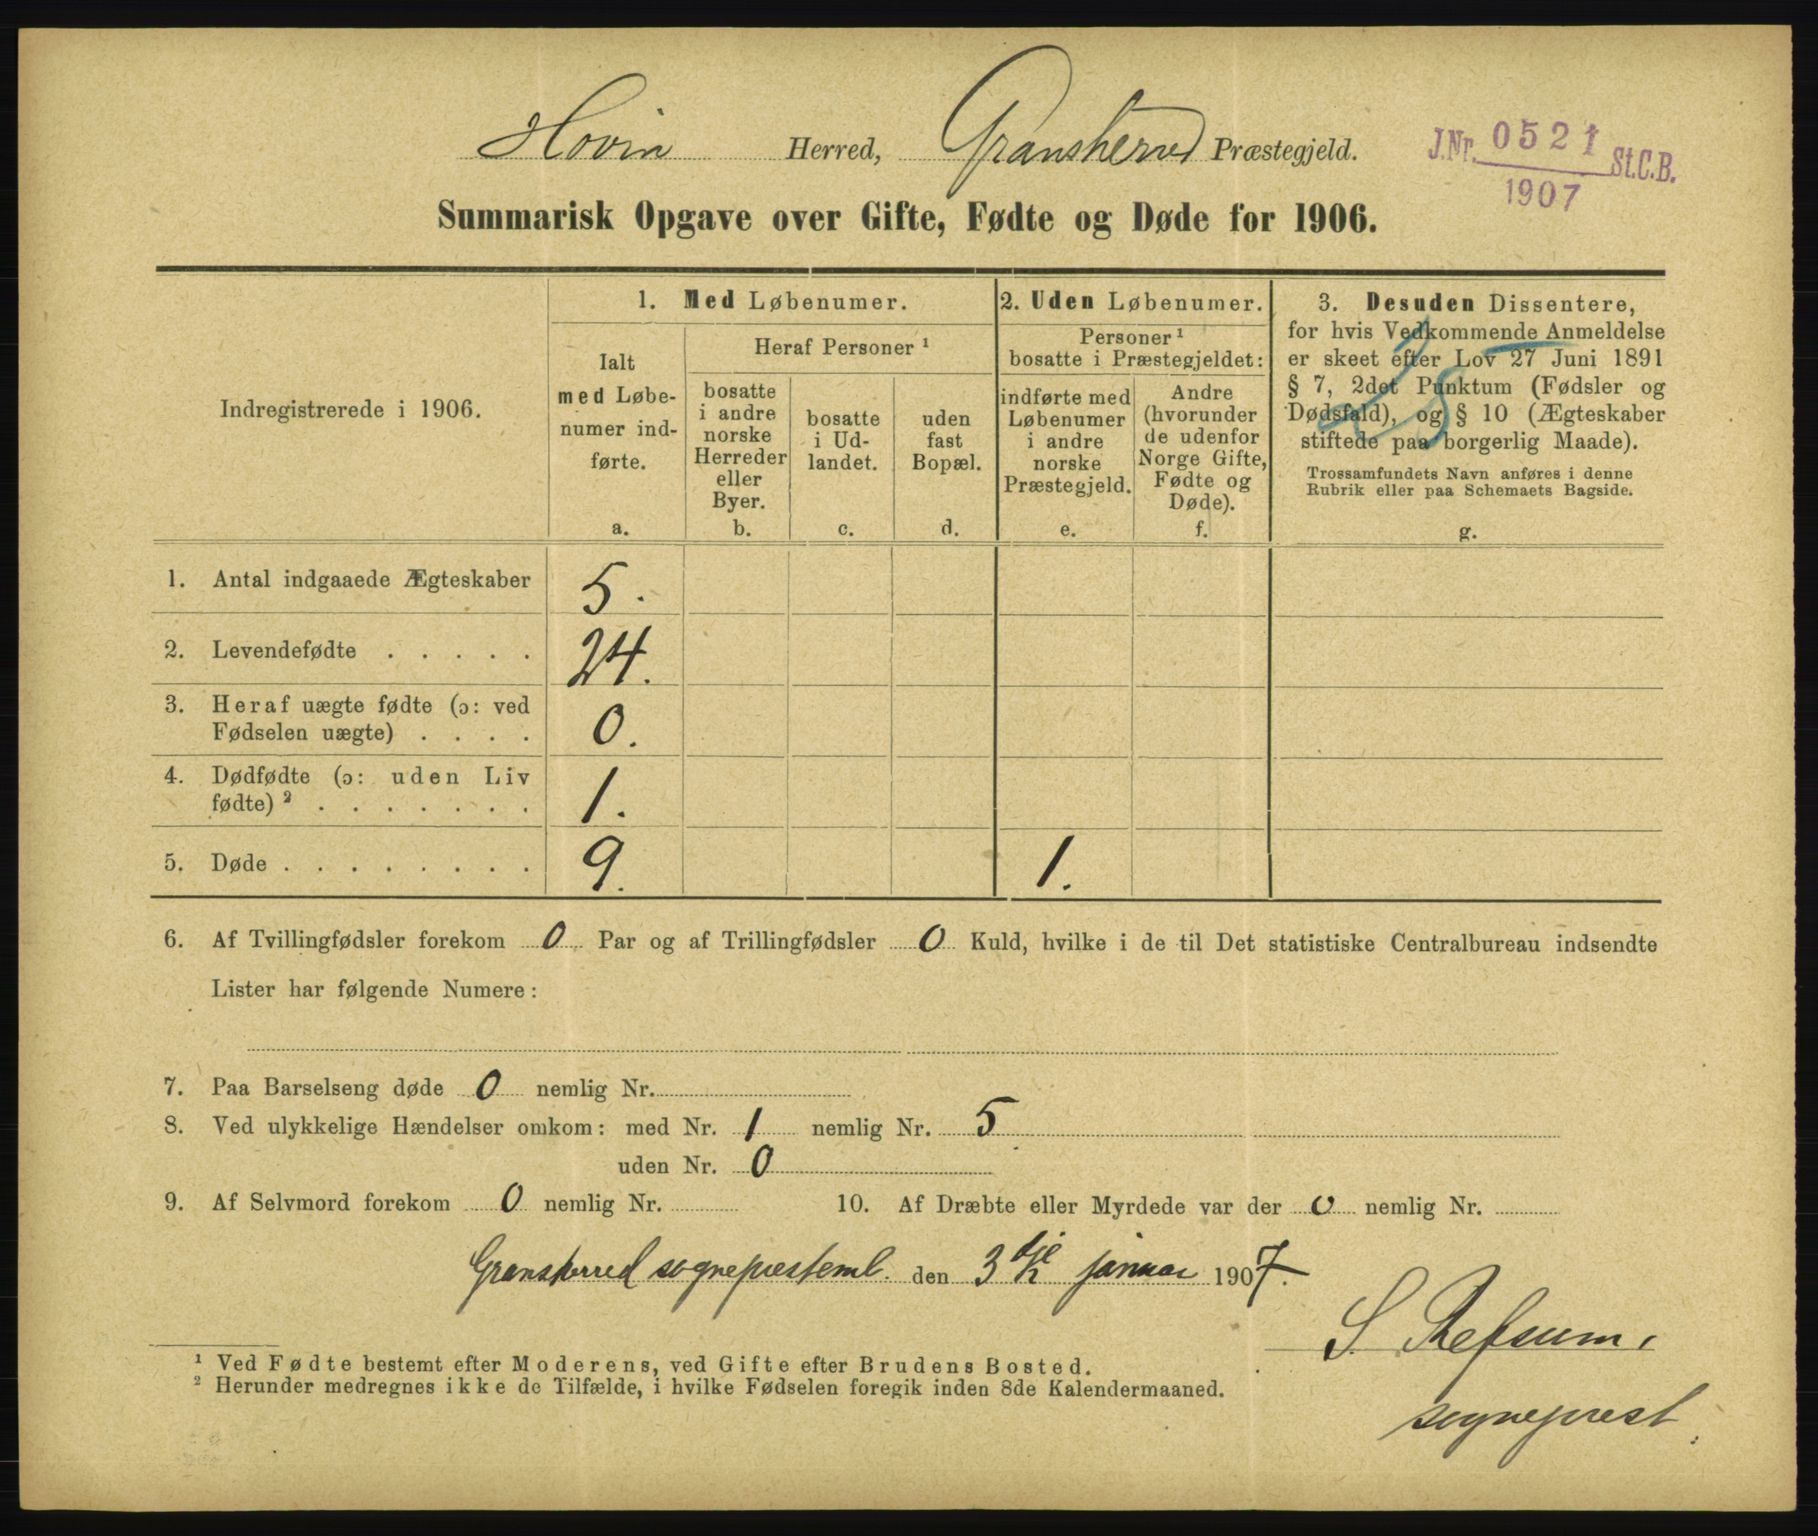 Hovin Herred, Gransherred Præstegjeld.
J.Nr. 0521 St.C.B.
1907
Summarisk Opgave over Gifte, Fødte og Døde for 1906.
Indregistrerede i 1906.
1. Med Løbenumer.
Ialt
med Løbe-
numer ind-
førte.
a.
Heraf Personer ¹
bosatte
i andre
norske
Herreder
eller
Byer.
b.
bosatte
i Ud-
landet.
c.
uden
fast
Bopæl.
d.
2. Uden Løbenumer.
Personer ¹
bosatte i Præstegjeldet:
indførte med
Løbenumer
i andre
norske
Præstegjeld.
e.
Andre
(hvorunder
de udenfor
Norge Gifte,
Fødte og
Døde).
f.
3. Desuden Dissentere,
for hvis Vedkommende Anmeldelse
er skeet efter Lov 27 Juni 1891
§ 7, 2det Punktum (Fødsler og
Dødsfald), og § 10 (Ægteskaber
stiftede paa borgerlig Maade).
Trossamfundets Navn anføres i denne
Rubrik eller paa Schemaets Bagside.
g.
1. Antal indgaaede Ægteskaber 5.
2. Levendefødte . . . . . 24.
3. Heraf uægte fødte (ɔ: ved
Fødselen uægte) . . . . 0.
4. Dødfødte (ɔ: uden Liv
fødte) ² . . . . . . . 1.
5. Døde . . . . . . . . 9. 1.
6. Af Tvillingfødsler forekom 0 Par og af Trillingfødsler 0 Kuld, hvilke i de til Det statistiske Centralbureau indsendte
Lister har følgende Numere:
7. Paa Barselseng døde 0 nemlig Nr.
8. Ved ulykkelige Hændelser omkom: med Nr. 1 nemlig Nr. 5
uden Nr. 0
9. Af Selvmord forekom 0 nemlig Nr. 10. Af Dræbte eller Myrdede var der 0 nemlig Nr.
Gransherred sognepræstemb. den 3dje januar 1907.
S. Refsum,
sogneprest.
¹ Ved Fødte bestemt efter Moderens, ved Gifte efter Brudens Bosted.
² Herunder medregnes ikke de Tilfælde, i hvilke Fødselen foregik inden 8de Kalendermaaned.